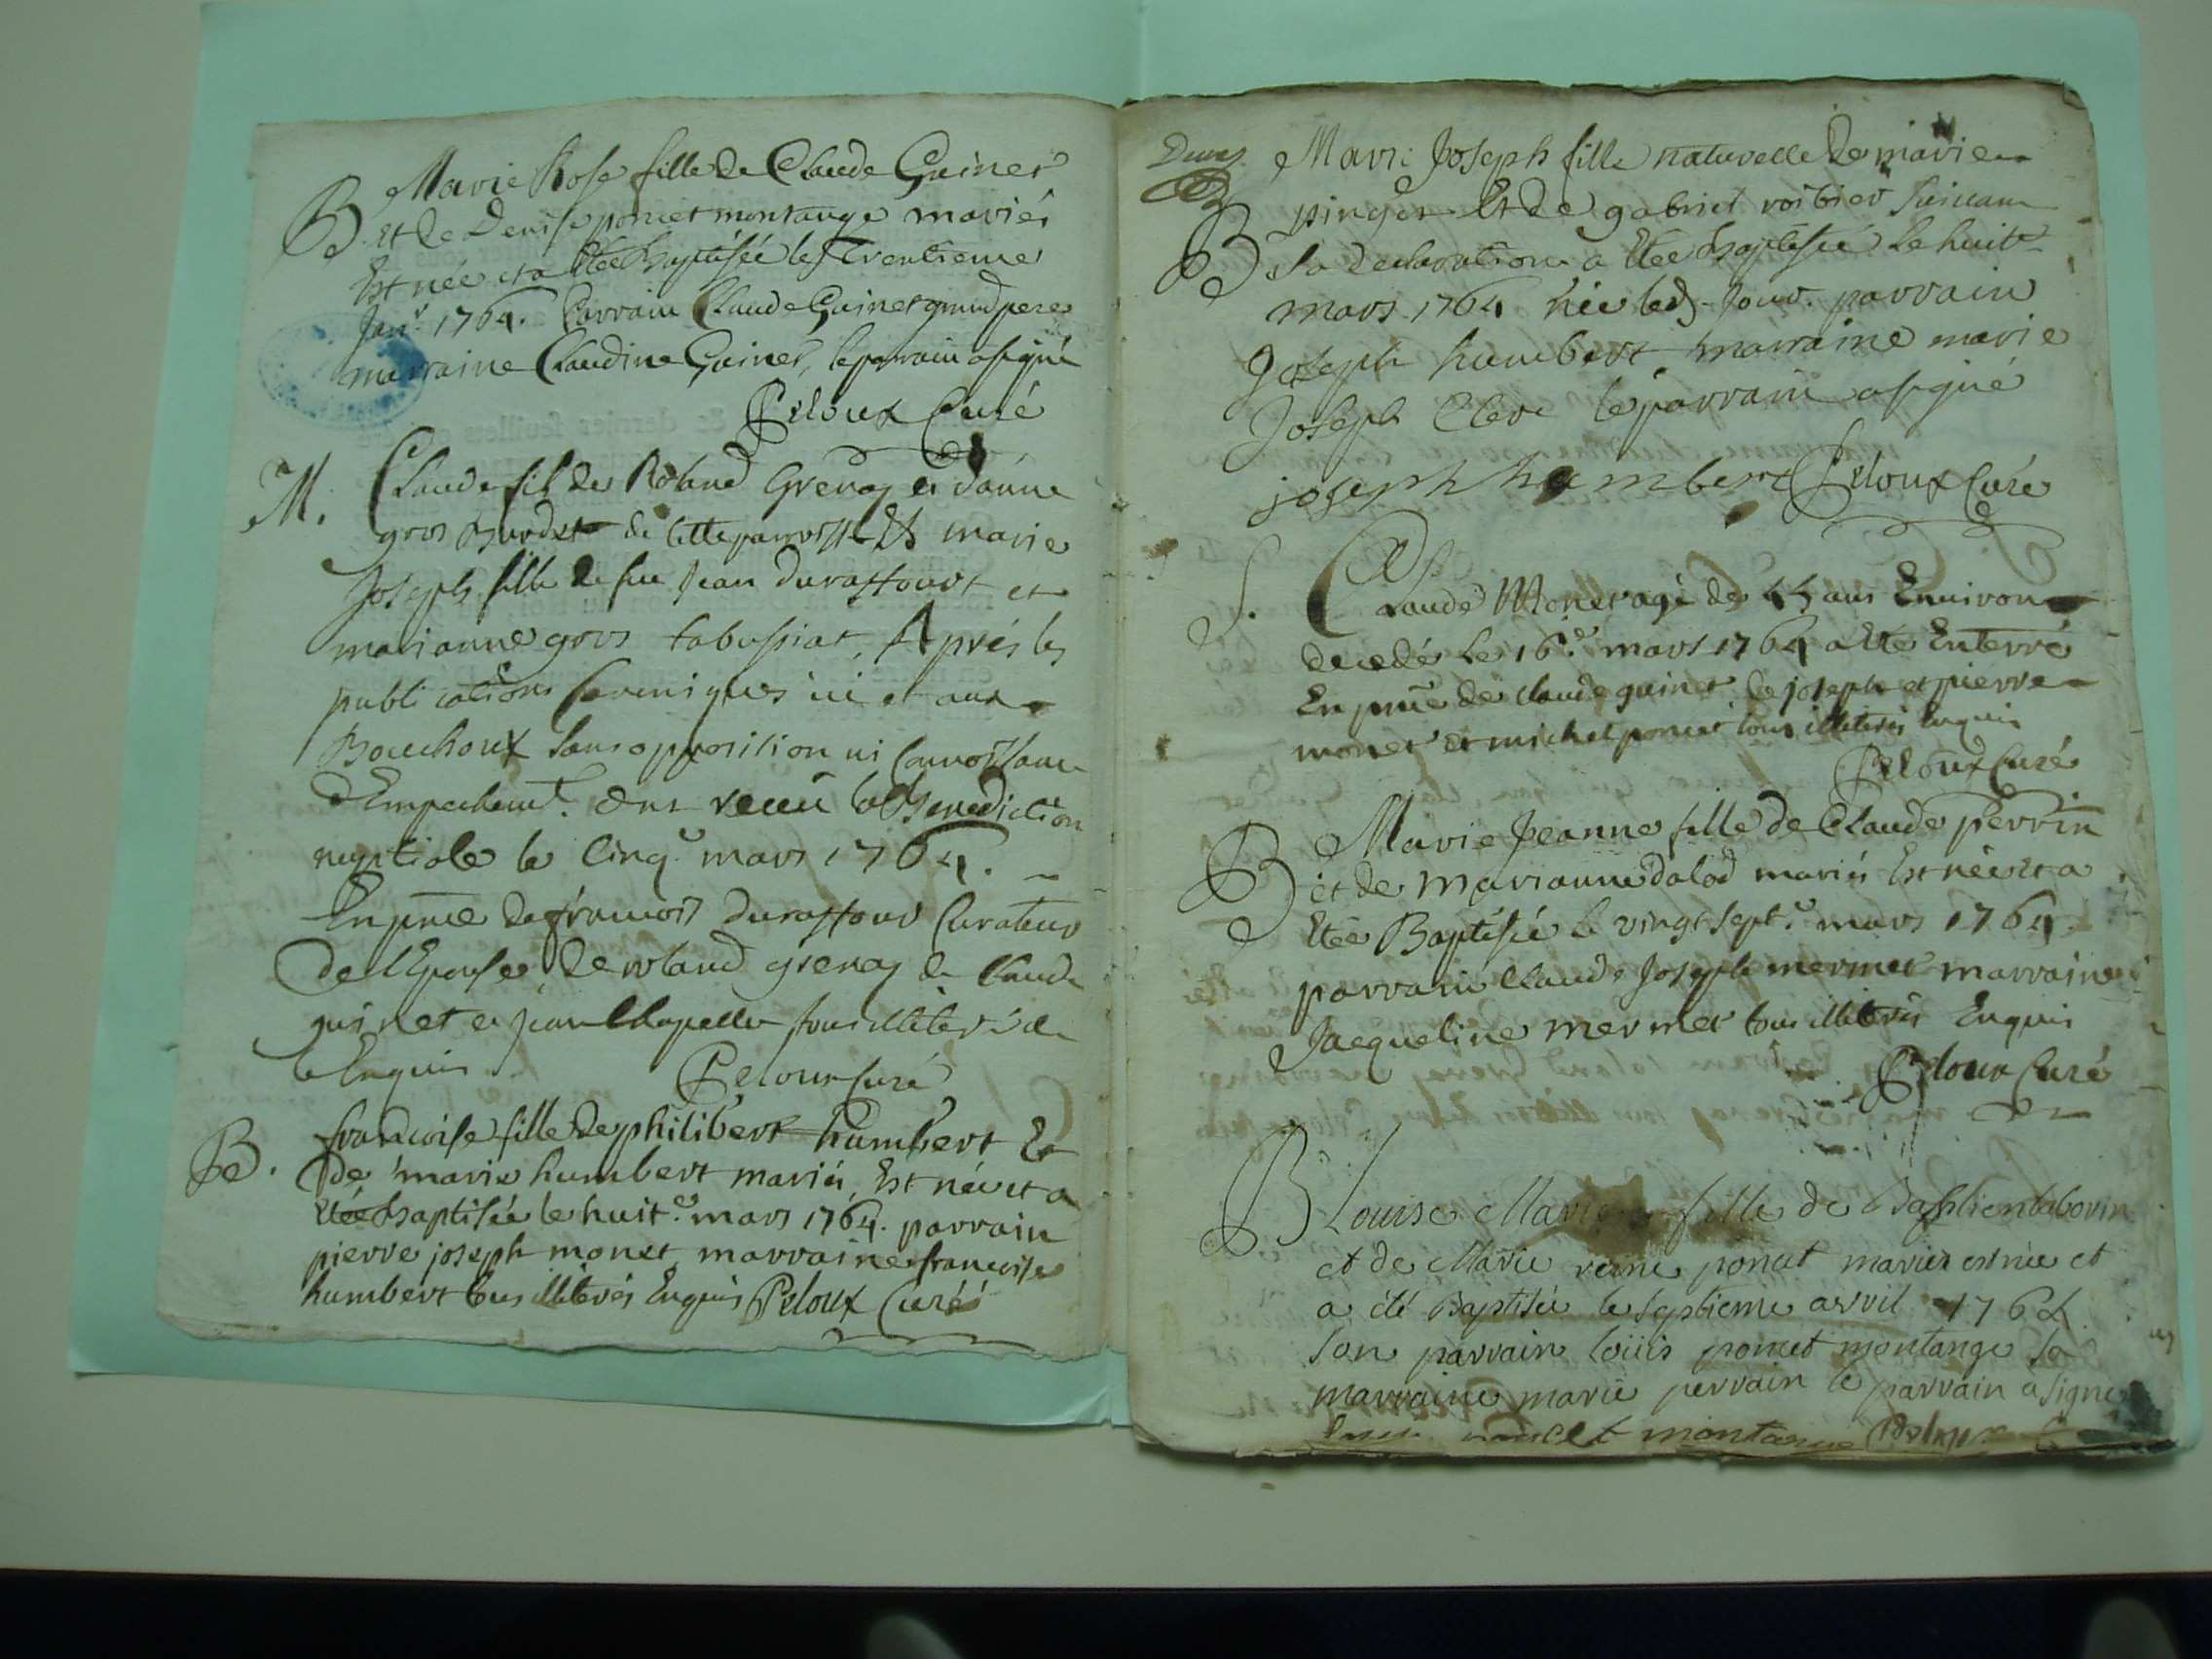 B. Marie Rose fille de Claude Guinet
et de Denise poncet montange mariés
Est née et a Etée Baptisée le Trentieme
Janr. 1764. Parrain Claude Guinet grand pere
marraine Claudine Guinet, le parrain a signé
Peloux Curé
M. Claude fils de Roland Grenay et
gros Burdet de cette parroisse Et marie
Joseph fille de feu Jean Duraffourt et
marianne gros tabussiat, Aprés les
publications Canoniques ici et aux
Bouchoux sans opposition ni Connoissance
d'Empechemt. Ont receu la Benediction
nuptiale le Cinqe. mars 1764.
En pñce de francois Duraffour Curateur
de l'Epouse, de roland grenay de Claude
guinet et Jean Chapelle tous illiterés de
ce Enquis Peloux Curé
B. francoise fille de philibert humbert Et
de marie humbert mariés, Est née et a
Etée Baptisée le huite. mars 1764. parrain
pierre joseph monet marraine francoise
humbert tous illiterés Enquis Peloux Curé
Marie Joseph fille naturelle de marie
pinget Et de gabriel roibier suivant
B sa declaration a Etée Baptisée le huite
mars 1764 née led. Jour. parrain
Joseph humbert marraine marie
Joseph le parrain a signé
joseph humbert Peloux Curé
S. Claude Monet agé de ans Environ
decedé le 16e. mars 1764 a Eté Enterré
En pñce de claude guinet de joseph et pierre
monet et michel poncet tous illiterés Enquis
Peloux Curé
B Marie Jeanne fille de Claude perrin
et de marianne dalod mariés Est née et a
Etée Baptisée le vingt sept.e mars 1764.
parrain Claude Joseph mermet marraine
Jacqueline mermet tous illiterés Enquis
Peloux Curé
B Louise Marie fille de Bastien tabourin
et de Marie reine poncet mariés est née et
a été Baptisée le septieme avril 1764
son parrain loüis poncet montange sa
marraine marie perrain le parrain a signé
poncet montange Peloux